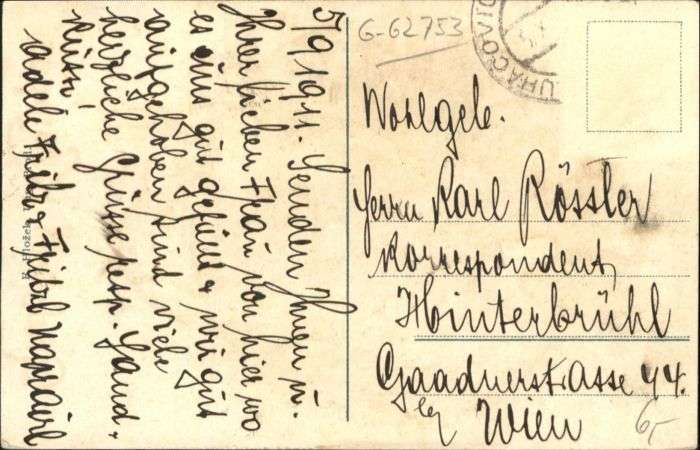 5/9 1911. Senden Ihnen u.
Ihrer lieben Frau von hier wo
es uns gut gefällt & wir gut
aufgehoben sind viele
herzliche Grüsse resp. Hand-
küsse
Adele Fritz & Fritzl
G-62753
LUHAČOVIC
Wohlgeb.
Herrn Karl Rössler
Korrespondent,
Hinterbrühl
Gaadnerstrasse 44.
bei Wien
6,-